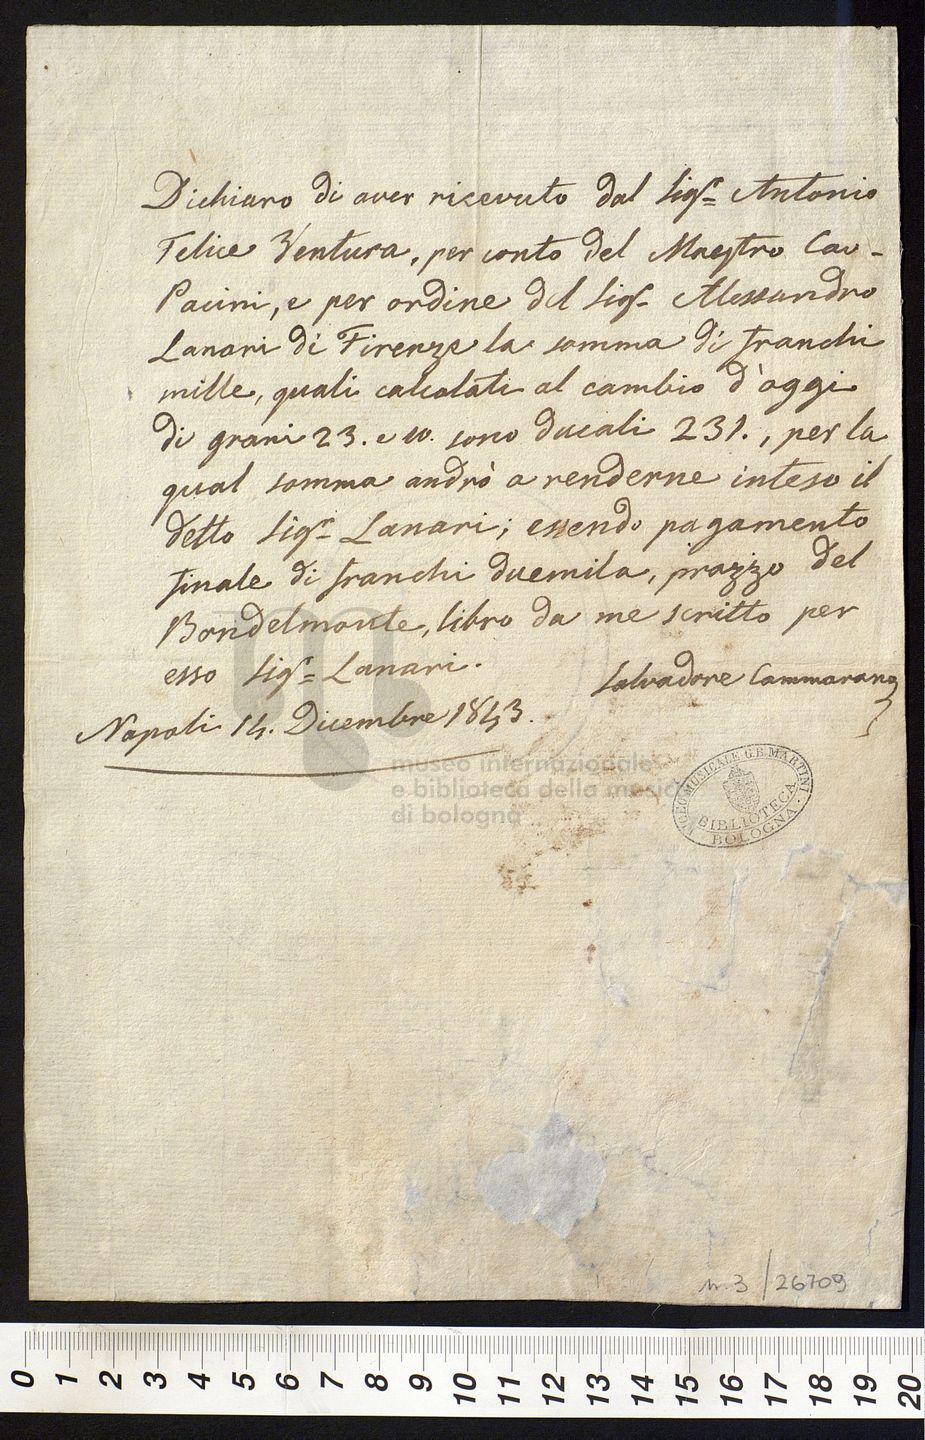 Dichiaro di aver ricevuto dal Sigr= Antonio
Felice Ventura, per conto del Maestro Cav-
Pacini, e per ordine del Sigr- Alessandro
Lanari di Firenze la somma di franchi
mille, quali calcolati al cambio d'oggi
di grani 23. e 10. sono ducali 231., per la
qual somma andrò a renderne inteso il
detto Sigr= Lanari; essendo pagamento
finale di franchi duemila, prazzo del
Bondelmonte, libro da me scritto per
esso Sigr= Lanari.
Salvadore Cammarano
Napoli 14. Dicembre 1843.
museo internazionale
e biblioteca della musica
di bologna
LICEO MUSICALE G.B. MARTINI
BIBLIOTECA
BOLOGNA
n. 3 / 26709
0 1 2 3 4 5 6 7 8 9 10 11 12 13 14 15 16 17 18 19 20